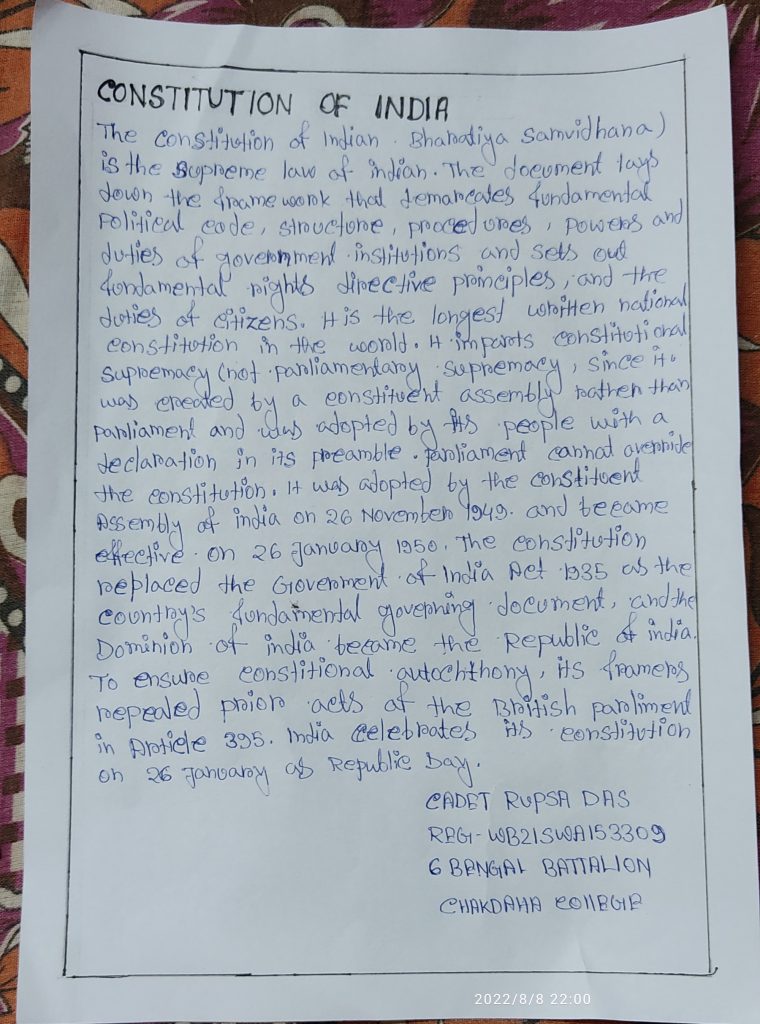 CONSTITUTION OF INDIA
The constitution of Indian . Bharatiya Samvidhana)
is the supreme law of indian. The document lays
down the frame work that demarcates fundamental
Political code, structure, procedures, powers and
duties of government institutions and sets out
fundamental rights directive principles, and the
duties of citizens. It is the longest written national
constitution in the world. It imparts constitutional
supremacy (not parliamentary supremacy, since it
was created by a constituent assembly rather than
parliament and was adopted by its people with a
declaration in its preamble. parliament cannot override
the constitution. It was adopted by the constituent
Assembly of india on 26 November 1949. and became
effective on 26 January 1950. The constitution
replaced the Government of India Act 1935 as the
country's fundamental governing document, and the
Dominion of india became the Republic of india.
To ensure constitional autochthony, its framers
repealed prior acts of the British parliment
in Article 395. India celebrates its constitution
on 26 January as Republic Day.
CADET RUPSA DAS
REG- WB21SWA153309
6 BENGAL BATTALION
CHAKDAHA COllEGE
2022/8/8 22:00